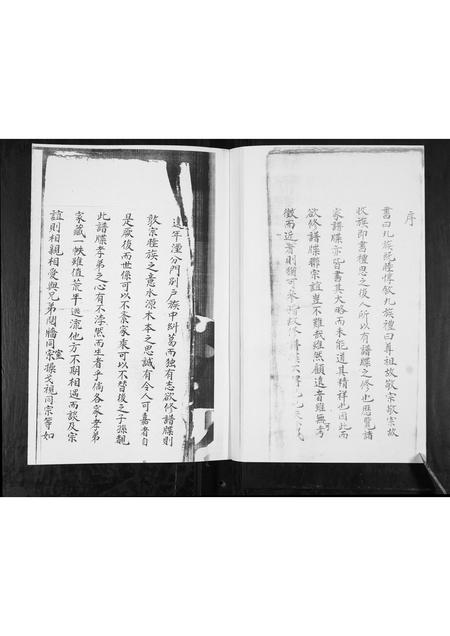 序
書曰九族既睦惇敘九族禮曰尊祖故敬宗敬宗故
收族即書種思之後人所以有譜牒之修也歷覽諸
家譜牒亦皆書其大略而未能道其精祥也因此而
欲修譜牒聯宗誼豈不難哉雖然顧遠者雖無可考
徵而近者則猶可
遠年湮分門別戶族中糾葛而独有志欲修譜牒則
敦宗睦族之意水源木本之思誠有令人可嘉者自
是厥後而世係可以不紊家乘可以不替後之子孫覩
此譜牒孝弟之心有不浡然而生者乎倘各家孝弟
家藏一帙雖值荒年逃流他方不期相遇而談及宗
誼則相親相愛與兄弟鬩牆同室操戈視同宗等如